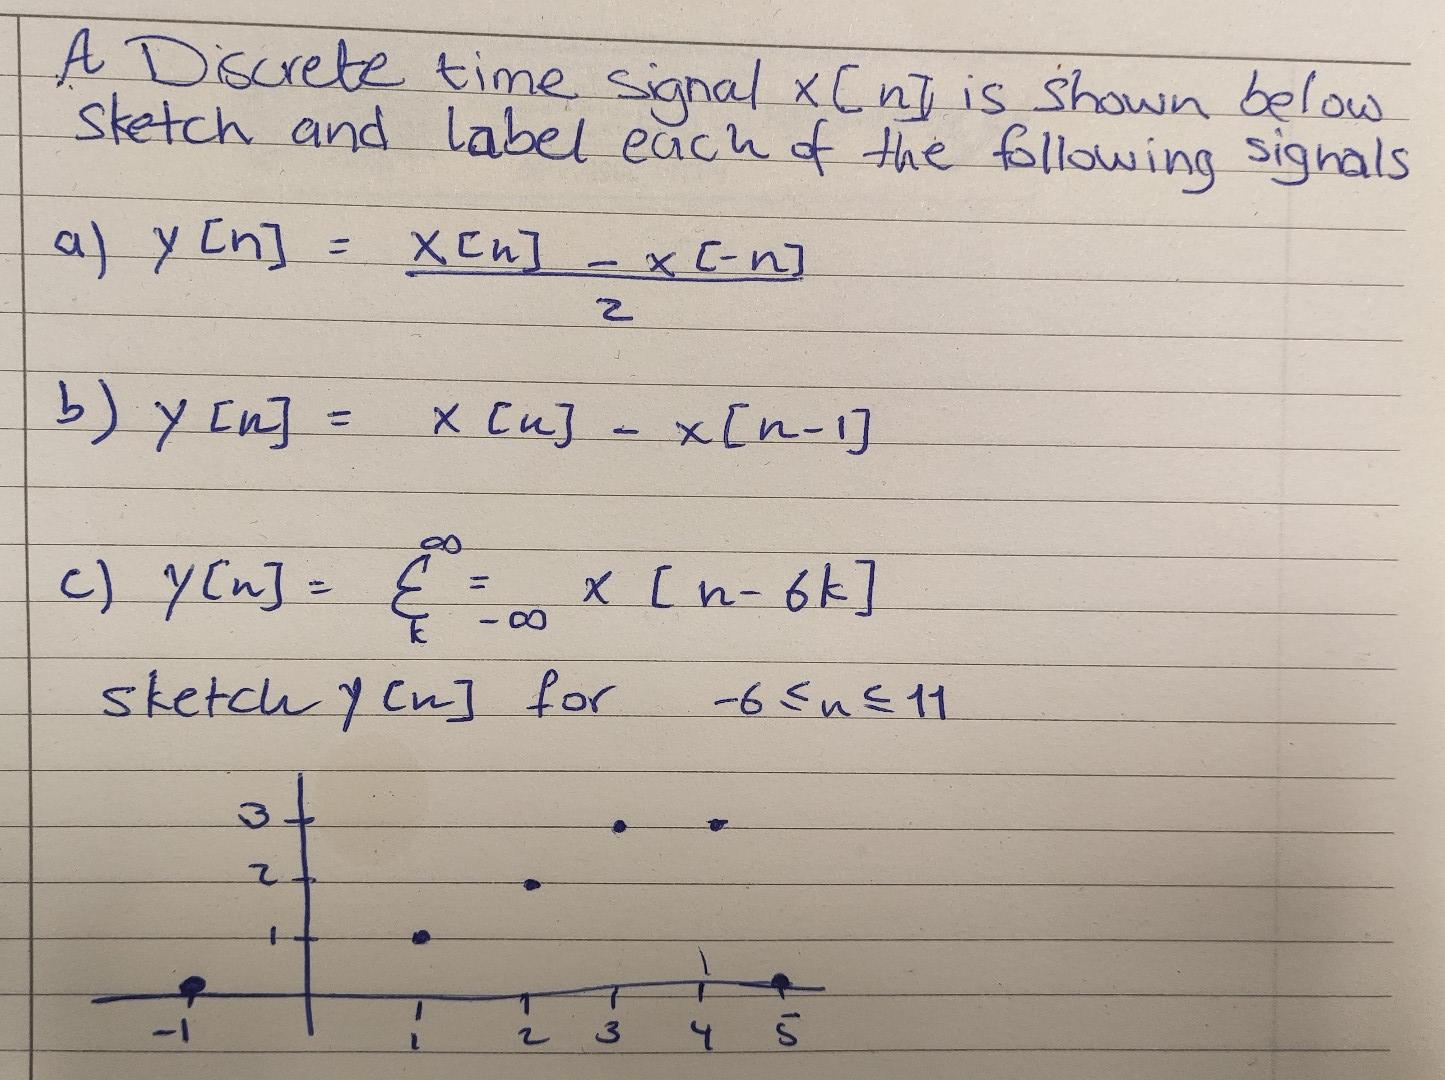 A Discrete time signal x[n] is shown below
sketch and label each of the following signals
a) y[n] = x[n] - x[-n]
2
b) y[n] = x[n] - x[n-1]
∞
c) y[n] = Σ = x[n-6k]
k -∞
sketch y[n] for -6 ≤ n ≤ 11
3
2
1
-1 1 2 3 4 5